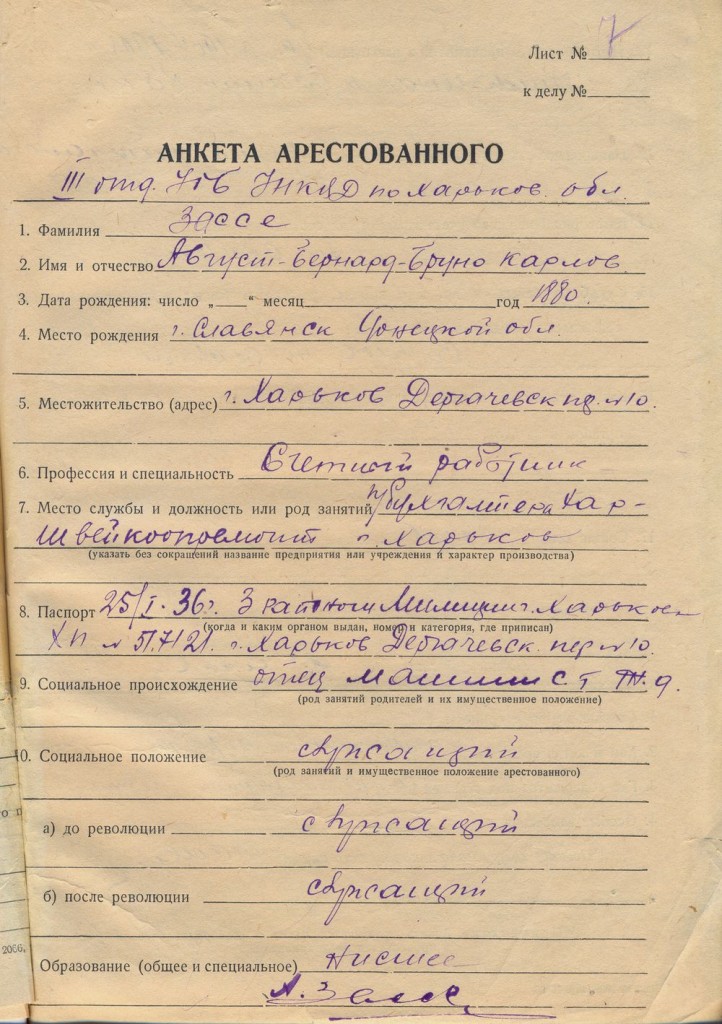 Лист № 7
к делу №
АНКЕТА АРЕСТОВАННОГО
III отд. УГБ УНКВД по Харьков. обл.
1. Фамилия Зассе
2. Имя и отчество Август-Бернард-Бруно Карлов.
3. Дата рождения: число „ “ месяц год 1880.
4. Место рождения г. Славянск Донецкой обл.
5. Местожительство (адрес) г. Харьков Дергачевск пер. №10.
6. Профессия и специальность Счетный работник
7. Место службы и должность или род занятий бухгалтера Хар-
швейкоопремонт г. Харьков
(указать без сокращений название предприятия или учреждения и характер производства)
8. Паспорт 25/I-36г. 3 Милиции г. Харьков
(когда и каким органом выдан, номер и категория, где приписан)
ХП № 517121. г. Харьков Дергачевск. пер №10.
9. Социальное происхождение отец машинист ж.д.
(род занятий родителей и их имущественное положение)
10. Социальное положение служащий
(род занятий и имущественное положение арестованного)
а) до революции служащий
б) после революции служащий
2066.
Образование (общее и специальное) низшее
А. Зассе